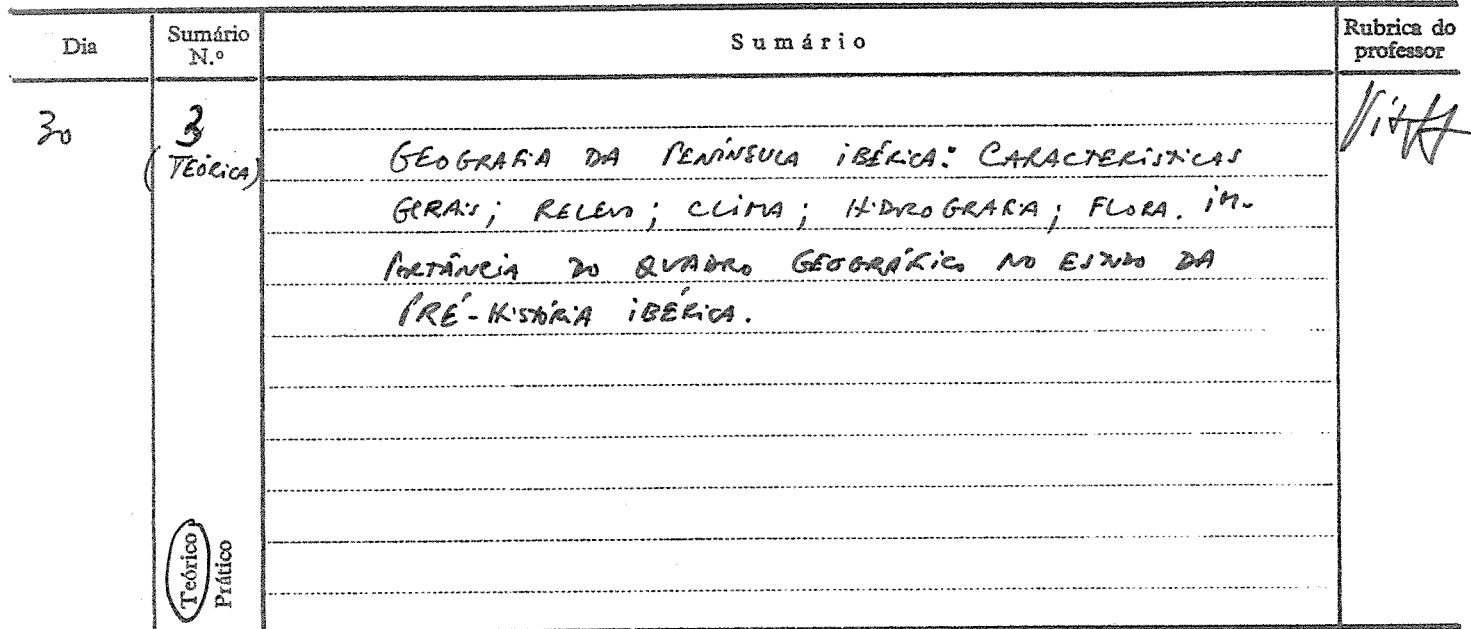 Dia
Sumário N.º
Sumário
Rubrica do professor
30
3
(TEÓRICA)
GEOGRAFIA DA PENÍNSULA IBÉRICA: CARACTERISTICAS
GERAIS; RELEVO; CLIMA; HIDROGRAFIA; FLORA. IM-
PORTÂNCIA DO QUADRO GEOGRÁFICO NO ESTUDO DA
PRÉ-HISTÓRIA IBÉRICA.
Teórico
Prático